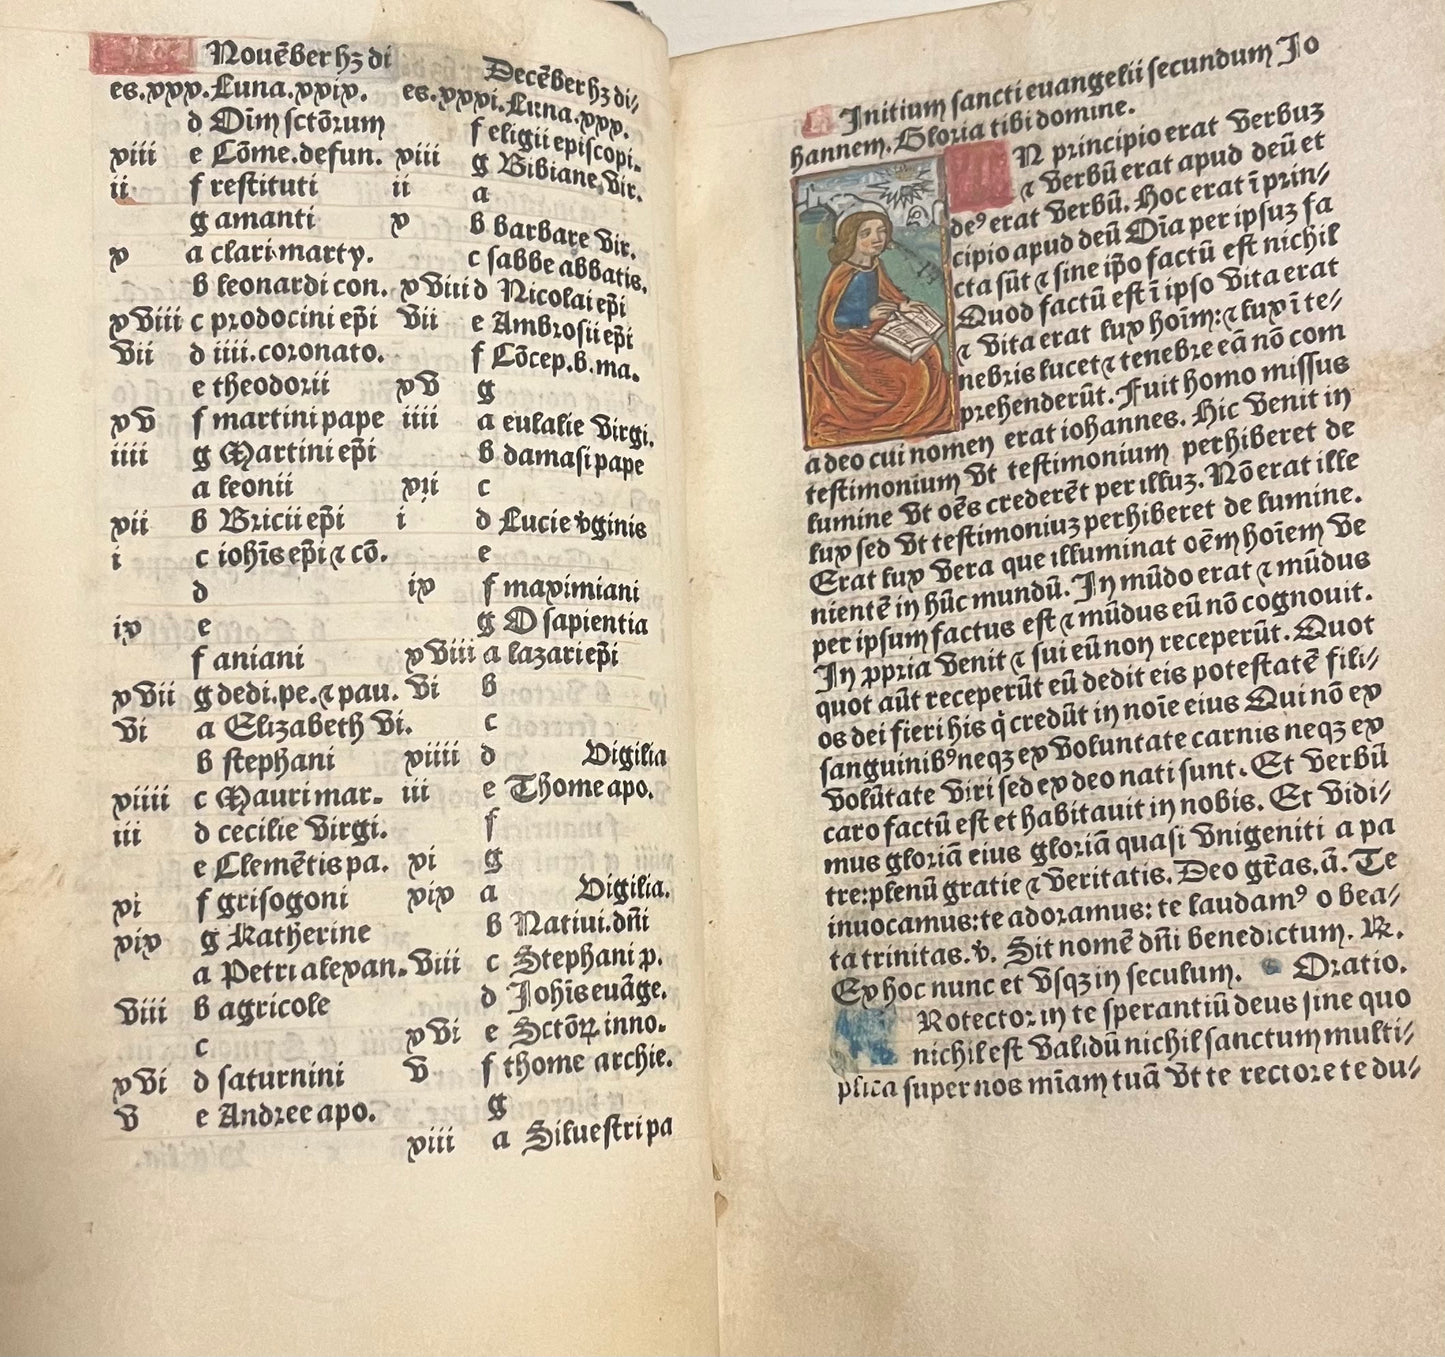 Nouēber hꝫ di
es.xxx.Luna.xxix.
d Oīm sctōrum
xiii e Cōme.defun.
ii f restituti
g amanti
x a clari marty.
b leonardi con.
xviii c prodocini ep̄i
vii d iiii.coronato.
e theodorii
xv f martini pape
iiii g Martini ep̄i
a leonii
xii b Bricii ep̄i
i c ioh̄is ep̄i ⁊ cō.
d
ix e
f aniani
xvii g dedi.pe.⁊ pau.
vi a Elizabeth vi.
b stephani
xiiii c Mauri mar.
iii d cecilie virgi.
e Clemētis pa.
xi f grisogoni
xix g Katherine
a Petri alexan.
viii b agricole
c
xvi d saturnini
v e Andree apo.
Decēber hꝫ di⸗
es.xxxi.Luna.xxx.
f eligii episcopi.
xiii g Bibiane vir.
ii a
x b barbare vir.
c sabbe abbatis.
xviii d Nicolai ep̄i
vii e Ambrosii ep̄i
f Cōcep.b.ma.
xv g
iiii a eulalie virgi.
b damasi pape
xii c
i d Lucie v̄ginis
e
ix f maximiani
g O sapientia
xviii a lazari ep̄i
vi b
c
xiiii d Vigilia
iii e Thome apo.
f
xi g
xix a Vigilia.
b Natiui.dn̄i
viii c Stephani p.
d Joh̄is euāge.
xvi e Sctōꝝ inno.
v f thome archie.
g
xiii a Siluestri pa
Initium sancti euangelii secundum Jo
hannem. Gloria tibi domine.
N principio erat verbuꝫ
⁊ verbū erat apud deū et
deꝰ erat verbū. Hoc erat ī prin⸗
cipio apud deū Oīa per ipsuꝫ fa
cta sūt ⁊ sine ip̄o factū est nichil
Quod factū est ī ipso vita erat
⁊ vita erat lux hoīm:⁊ lux ī te⸗
nebris lucet ⁊ tenebre eā nō com
prehenderūt. Fuit homo missus
a deo cui nomen erat iohannes. Hic venit in
testimonium vt testimonium perhiberet de
lumine vt oēs crederēt per illuꝫ. Nō erat ille
lux sed vt testimoniuꝫ perhiberet de lumine.
Erat lux vera que illuminat oēm hoīem ve
nientē in hūc mundū. In mūdo erat ⁊ mūdus
per ipsum factus est ⁊ mūdus eū nō cognouit.
In ꝓpria venit ⁊ sui eū non receperūt. Quot
quot aūt receperūt eū dedit eis potestatē fili⸗
os dei fieri his q̇ credūt in noīe eius Qui nō ex
sanguinibꝰ neqꝫ ex voluntate carnis neqꝫ ex
volūtate viri sed ex deo nati sunt. Et verbū
caro factū est et habitauit in nobis. Et vidi⸗
mus gloriā eius gloriā quasi vnigeniti a pa
tre:plenū gratie ⁊ veritatis. Deo gr̄as.ā. Te
inuocamus:te adoramus: te laudamꝰ o bea⸗
ta trinitas.v̄. Sit nomē dn̄i benedictum. ℟.
Ex hoc nunc et vsqꝫ in seculum. Oratio.
Rotector in te sperantiū deus sine quo
nichil est validū nichil sanctum multi⸗
plica super nos mīam tuā vt te rectore te du⸗